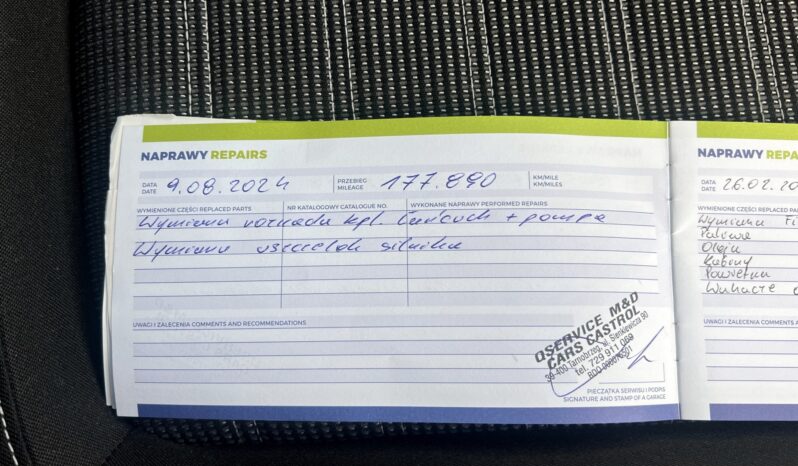 NAPRAWY REPAIRS
DATA
DATE
9.08.2024
PRZEBIEG
MILEAGE
177.890
KM/MILE
KM/MILES
WYMIENIONE CZĘŚCI REPLACED PARTS
NR KATALOGOWY CATALOGUE NO.
WYKONANE NAPRAWY PERFORMED REPAIRS
Wymiana rozrządu kpl. Łańcuch + pompa
Wymiana uszczelek silnika
UWAGI I ZALECENIA COMMENTS AND RECOMMENDATIONS
QSERVICE M&D
CARS CASTROL
39-400 Tarnobrzeg, ul. Sienkiewicza 90
tel. 729 911 069
PIECZĄTKA SERWISU I PODPIS
SIGNATURE AND STAMP OF A GARAGE
NAPRAWY REPA
DATA
DATE
26.02.20
WYMIENIONE CZĘŚCI REPLACED PAR
Wymiana Fi
Paliwa
Oleju
Kabiny
Powietrza
Wahacze
UWAGI I ZALECENIA COMMENTS AN